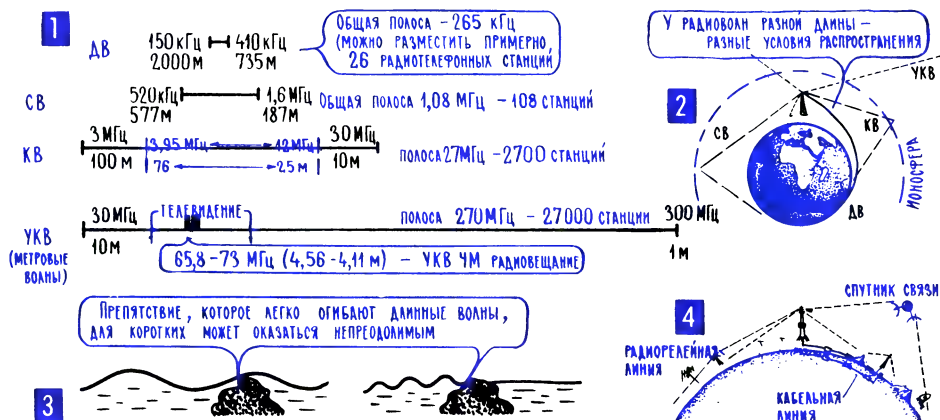 1
ДВ
150 кГц 410 кГц
2000 м 735 м
Общая полоса – 265 кГц
(можно разместить примерно
26 радиотелефонных станций
СВ
520 кГц 1,6 МГц
577 м 187 м
Общая полоса 1,08 МГц – 108 станций
КВ
3 МГц 3,95 МГц 12 МГц 30 МГц
100 м 76 25 м 10 м
полоса 27 МГц – 2700 станций
УКВ
(метровые
волны)
30 МГц телевидение 300 МГц
10 м 1 м
полоса 270 МГц – 27000 станции
65,8–73 МГц (4,56–4,11 м) – УКВ ЧМ радиовещание
2
У радиоволн разной длины –
разные условия распространения
УКВ
СВ
КВ
ДВ
ионосфера
3
Препятствие, которое легко огибают длинные волны,
для коротких может оказаться непреодолимым
4
спутник связи
радиорелейная
линия
кабельная
линия